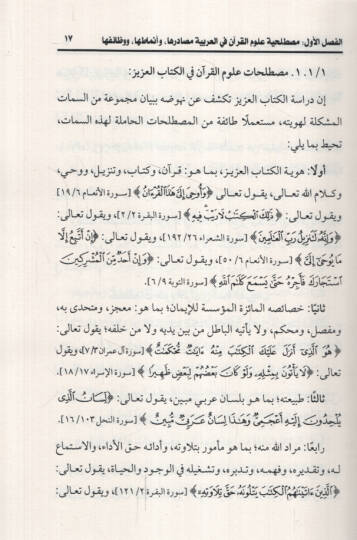 الفصل الأول: مصطلحية علوم القرآن في العربية مصادرها، وأنماطها، ووظائفها ١٧
١/١. ١. مصطلحات علوم القرآن في الكتاب العزيز:
إن دراسة الكتاب العزيز تكشف عن نهوضه ببيان مجموعة من السمات
المشكلة لهويته، مستعملًا طائفة من المصطلحات الحاملة لهذه السمات،
تحيط بما يلي:
أولًا: هوية الكتاب العزيز، بما هو: قرآن، وكتاب، وتنزيل، ووحي،
وكلام الله تعالى، يقول تعالى ﴿وَأُوحِىَ إِلَىَّ هَٰذَا ٱلْقُرْءَانُ﴾ [سورة الأنعام ١٩/٦]
ويقول تعالى: ﴿ذَٰلِكَ ٱلْكِتَٰبُ لَا رَيْبَ فِيهِ﴾ [سورة البقرة ٢/٢]، ويقول تعالى:
﴿وَإِنَّهُۥ لَتَنزِيلُ رَبِّ ٱلْعَٰلَمِينَ﴾ [سورة الشعراء ١٩٢/٢٦]، ويقول تعالى: ﴿إِنْ أَتَّبِعُ إِلَّا
مَا يُوحَىٰٓ إِلَىَّ﴾ [سورة الأنعام ٥٠/٦]، ويقول تعالى: ﴿وَإِنْ أَحَدٌ مِّنَ ٱلْمُشْرِكِينَ
ٱسْتَجَارَكَ فَأَجِرْهُ حَتَّىٰ يَسْمَعَ كَلَٰمَ ٱللَّهِ﴾ [سورة التوبة ٦/٩].
ثانيًا: خصائصه المائزة المؤسسة للإيمان؛ بما هو: معجز، ومتحدى به،
ومفصل، ومحكم، ولا يأتيه الباطل من بين يديه ولا من خلفه؛ يقول تعالى:
﴿هُوَ ٱلَّذِىٓ أَنزَلَ عَلَيْكَ ٱلْكِتَٰبَ مِنْهُ ءَايَٰتٌ مُّحْكَمَٰتٌ﴾ [سورة آل عمران ٧/٣]، ويقول
تعالى: ﴿لَا يَأْتُونَ بِمِثْلِهِۦ وَلَوْ كَانَ بَعْضُهُمْ لِبَعْضٍ ظَهِيرًا﴾ [سورة الإسراء ١٨/١٧].
ثالثًا: طبيعته؛ بما هو بلسان عربي مبين، يقول تعالى: ﴿لِّسَانُ ٱلَّذِى
يُلْحِدُونَ إِلَيْهِ أَعْجَمِىٌّ وَهَٰذَا لِسَانٌ عَرَبِىٌّ مُّبِينٌ﴾ [سورة النحل ١٠٣/١٦].
رابعًا: مراد الله منه؛ بما هو مأمور بتلاوته، وأدائه حق الأداء، والاستماع
له، وتقديره، وفهمه، وتدبره، وتشغيله في الوجود والحياة، يقول تعالى:
﴿ٱلَّذِينَ ءَاتَيْنَٰهُمُ ٱلْكِتَٰبَ يَتْلُونَهُۥ حَقَّ تِلَاوَتِهِۦ﴾ [سورة البقرة ١٢١/٢]، ويقول تعالى: